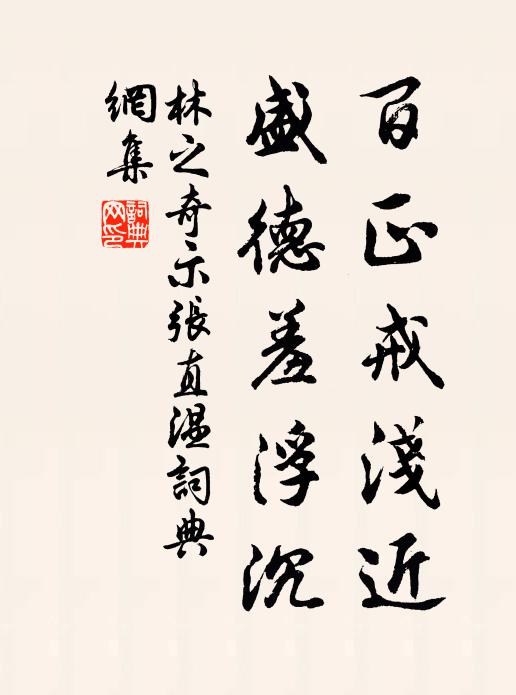 百正戒淺近
盛德羞浮沉
林之奇示張直溫詞典
網集
詞典網印